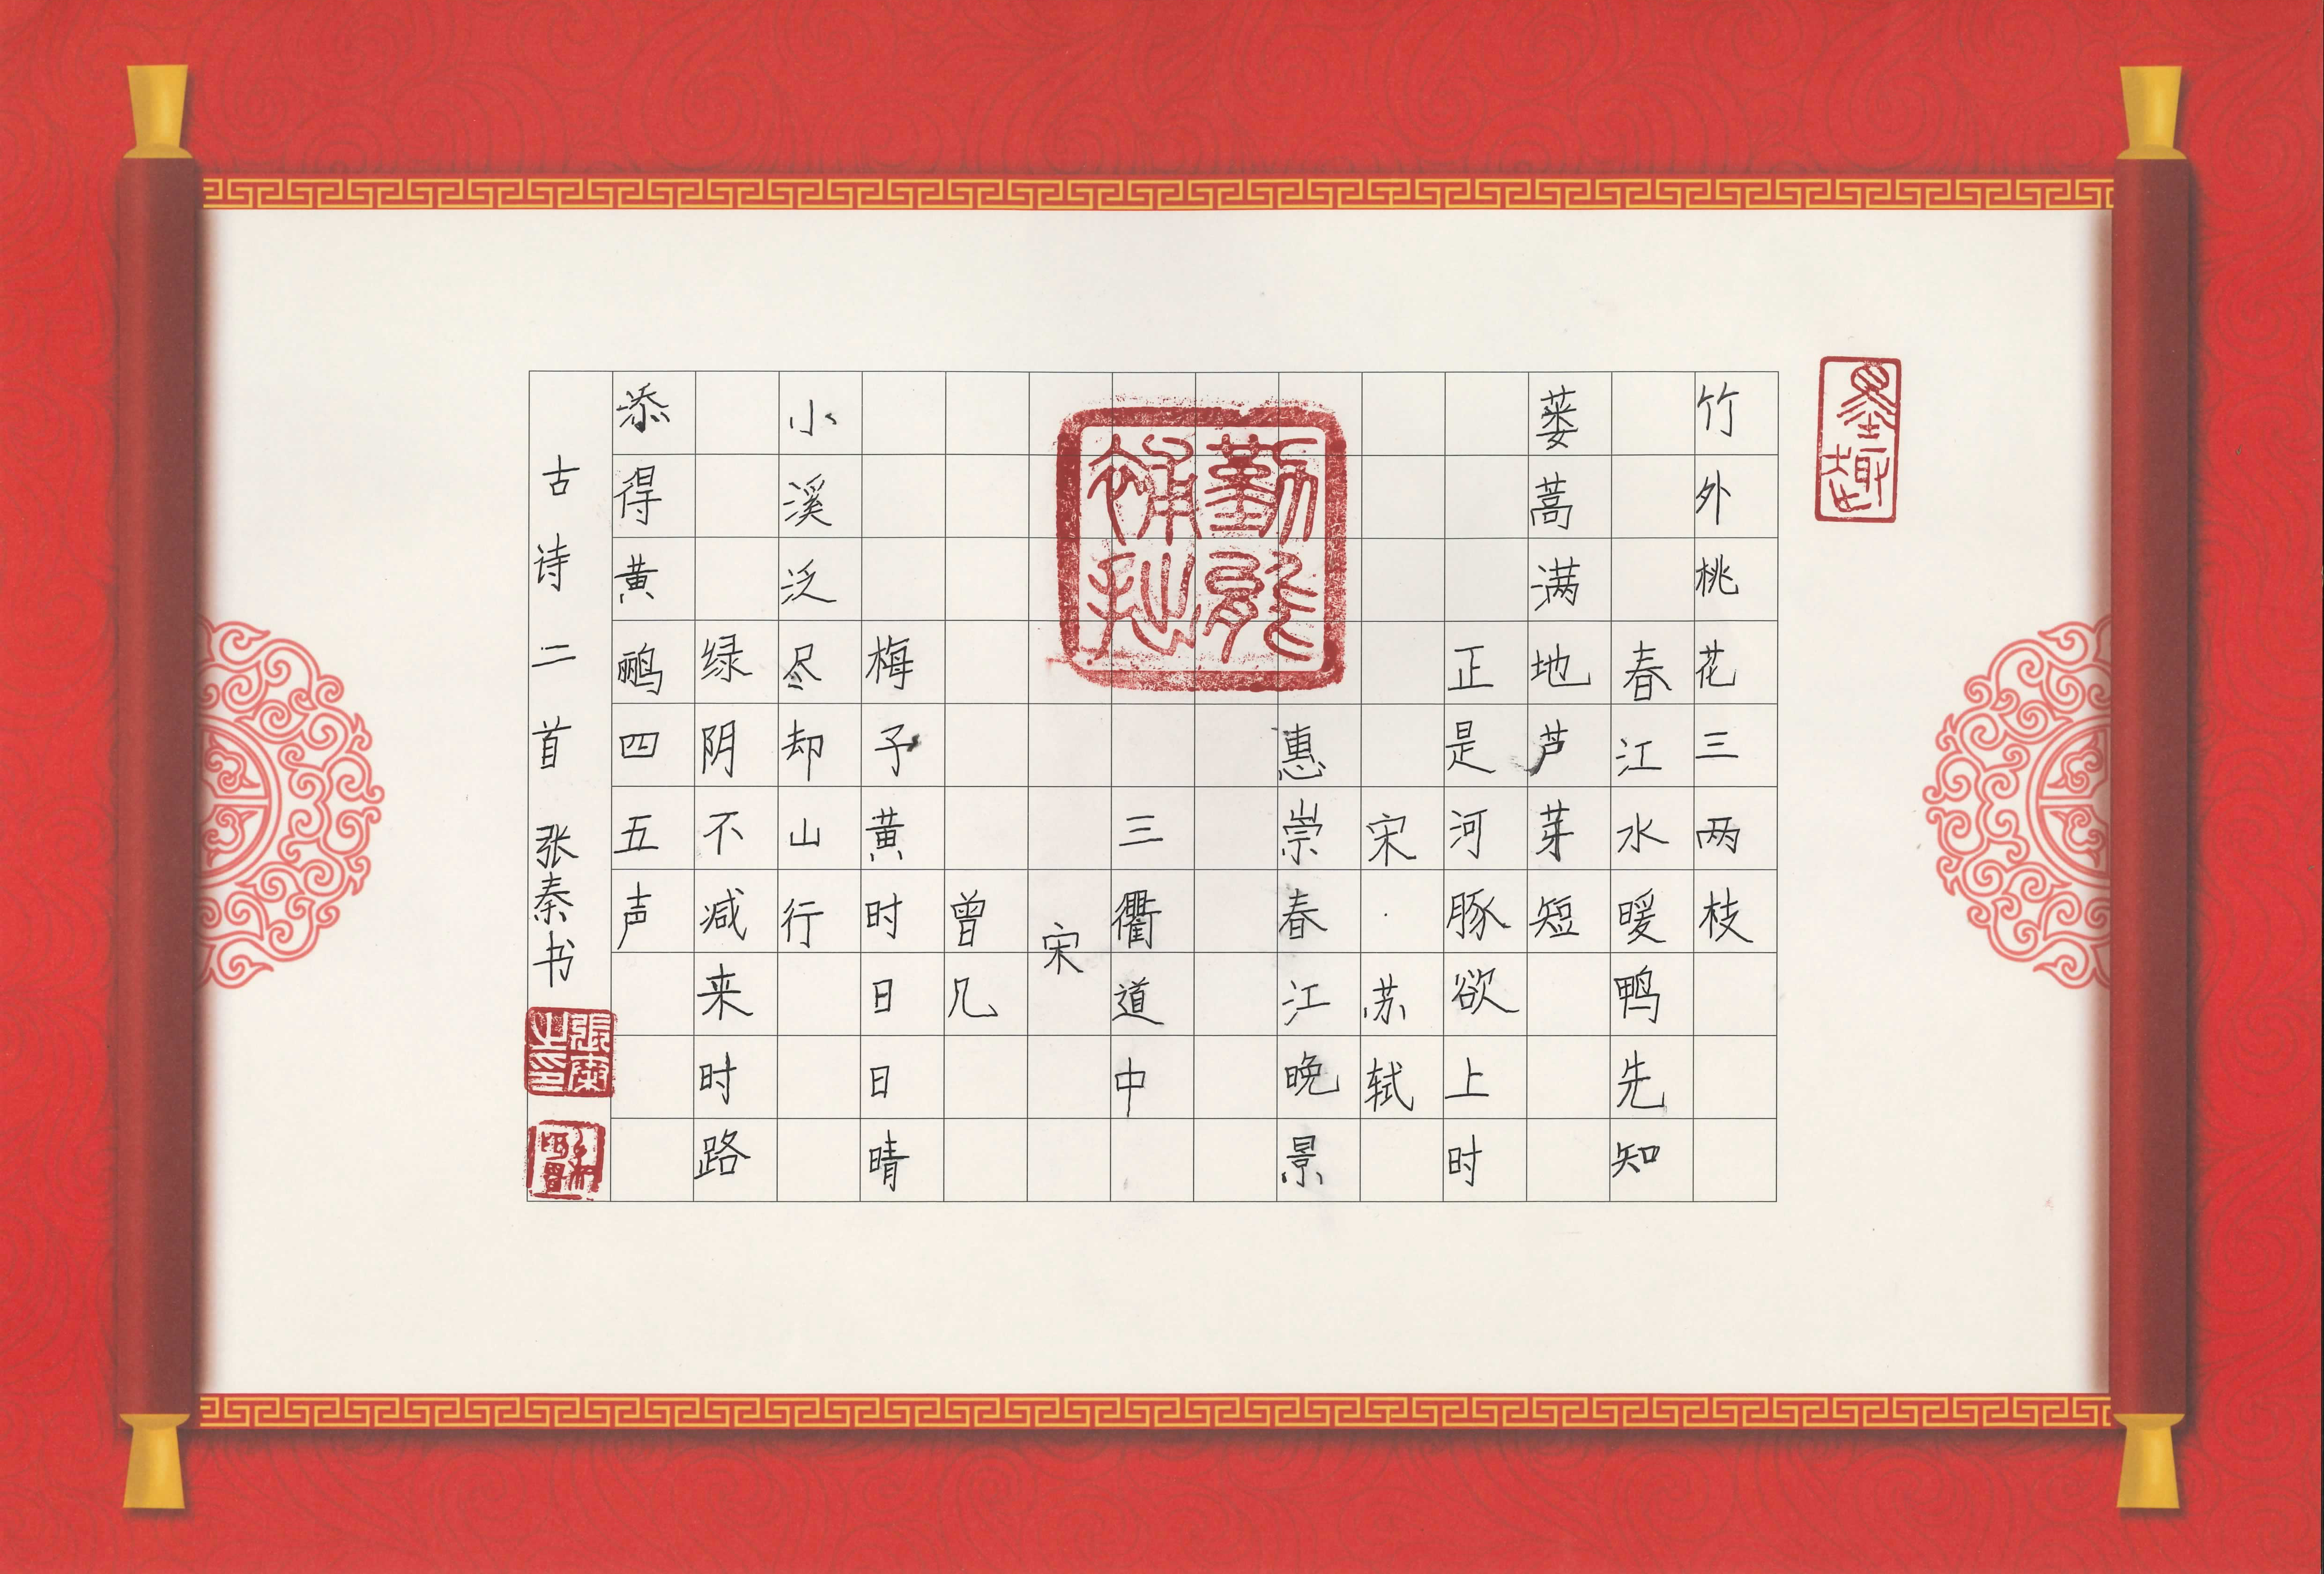 墨趣
竹外桃花三两枝
春江水暖鸭先知
蒌蒿满地芦芽短
正是河豚欲上时
宋·苏轼
惠崇春江晚景
勤能補拙
三衢道中
宋
曾几
梅予黄时日日晴
小溪泛尽却山行
绿阴不减来时路
添得黄鹂四五声
古诗二首 张秦书